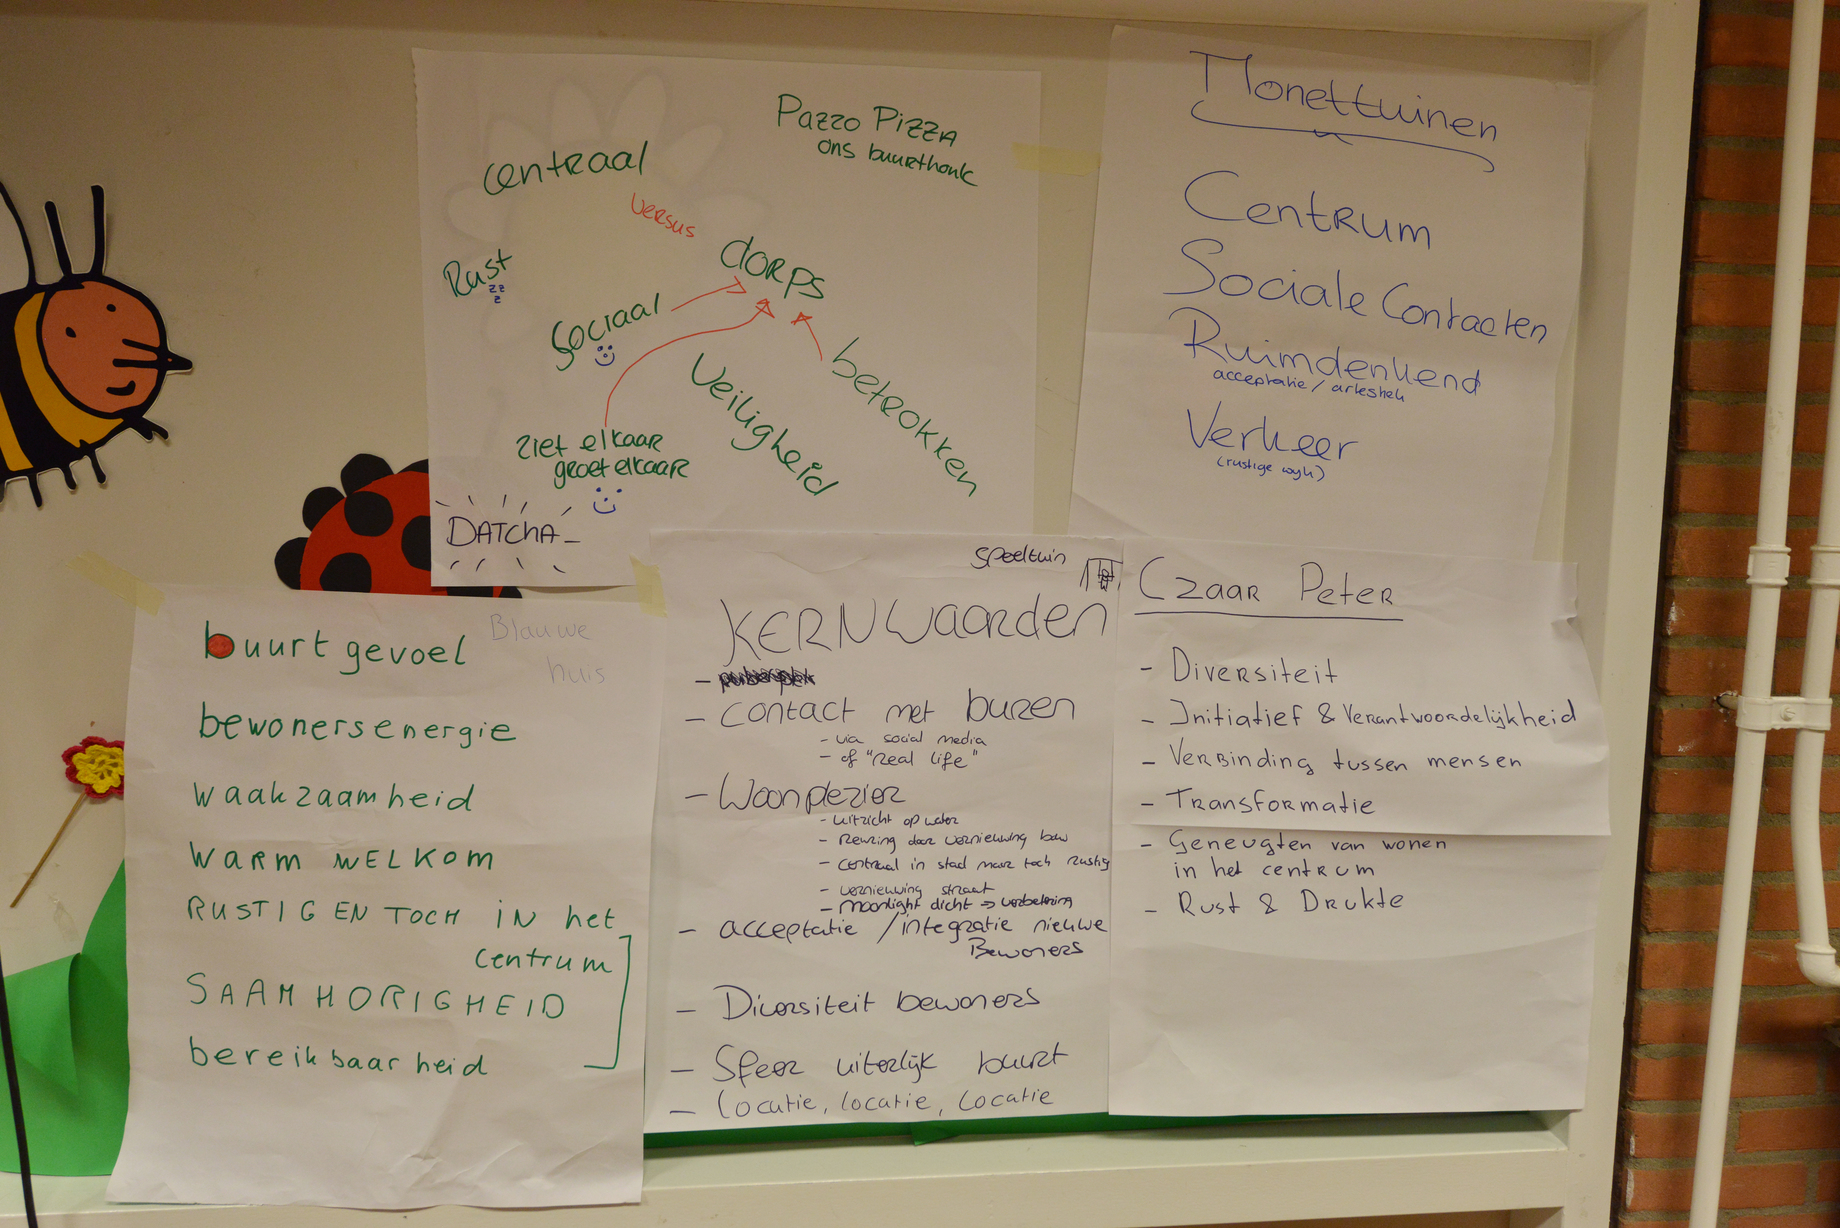 Pazzo Pizza
ons buurthonk
Centraal
versus
dorps
Rust
zz
z
Sociaal
betrokken
Veiligheid
ziet elkaar
groet elkaar
DATCHA
Monettuinen
Centrum
Sociale Contacten
Ruimdenkend
acceptatie /
Verkeer
(rustige wijk)
Blauwe
huis
buurtgevoel
bewonersenergie
waakzaamheid
WARM WELKOM
RUSTIG EN TOCH IN het
centrum
SAAMHORIGHEID
bereikbaarheid
speeltuin
KERNWaarden
- contact met buren
- via social media
- of "Real life"
- Woonplezier
- uitzicht op water
- Reuring door vernieuwing bouw
- centraal in stad maar toch rustig
- vernieuwing straat
- Moonlight dicht => verbetering
- acceptatie / integratie nieuwe
Bewoners
- Diversiteit bewoners
- Sfeer uiterlijk buurt
- Locatie, locatie, Locatie
Czaar Peter
- Diversiteit
- Initiatief & Verantwoordelijkheid
- Verbinding tussen mensen
- Transformatie
- Geneugten van wonen
in het centrum
- Rust & Drukte